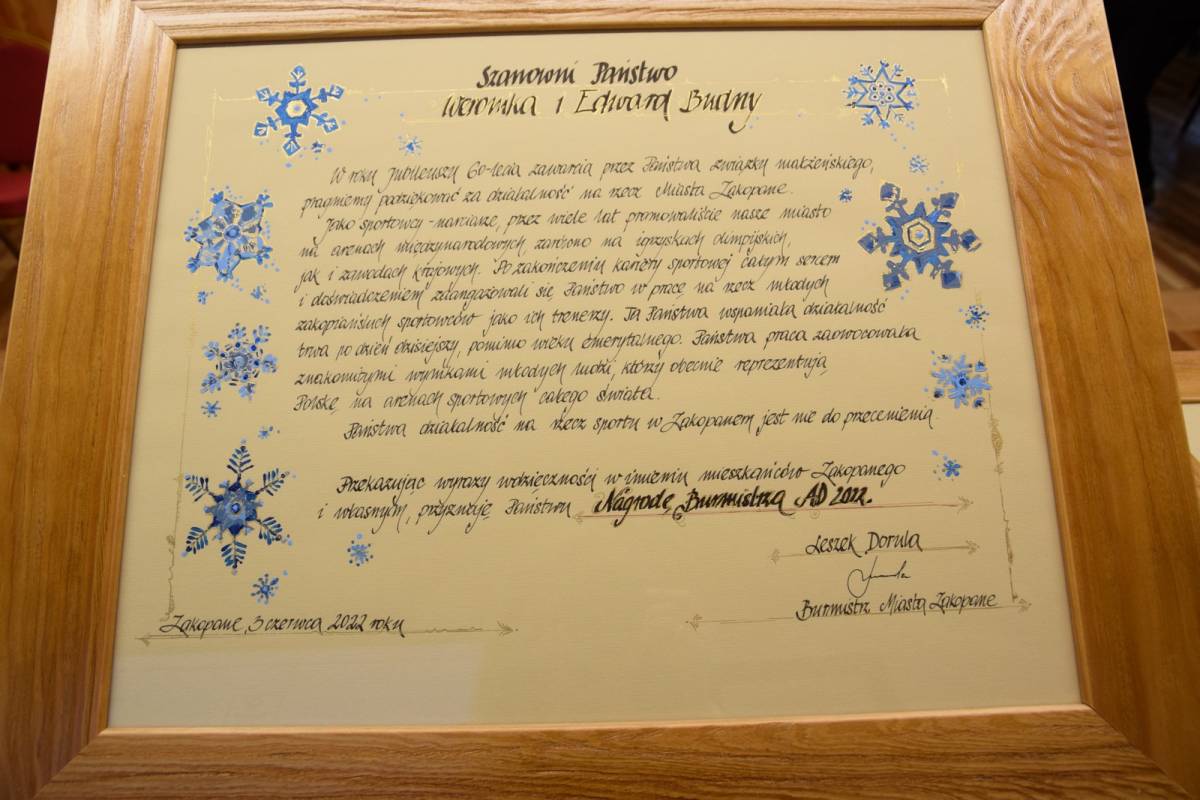 Szanowni Państwo
Weronika i Edward Budny
W roku Jubileuszu 60-lecia zawarcia przez Państwa związku małżeńskiego,
pragniemy podziękować za działalność na rzecz Miasta Zakopane.
Jako sportowcy - narciarze, przez wiele lat promowaliście nasze miasto
na arenach międzynarodowych, zarówno na igrzyskach olimpijskich,
jak i zawodach krajowych. Po zakończeniu kariery sportowej całym sercem
i doświadczeniem zaangażowali się Państwo w pracę na rzecz młodych
zakopiańskich sportowców jako ich trenerzy. Ta Państwa wspaniała działalność
trwa po dzień dzisiejszy, pomimo wieku emerytalnego. Państwa praca zaowocowała
znakomitymi wynikami młodych ludzi, którzy obecnie reprezentują
Polskę, na arenach sportowych całego świata.
Państwa działalność na rzecz sportu w Zakopanem jest nie do przecenienia.
Przekazując wyrazy wdzięczności w imieniu mieszkańców Zakopanego
i własnym, przyznaję Państwu Nagrodę Burmistrza AD 2022.
Leszek Dorula
Burmistrz Miasta Zakopane
Zakopane, 3 czerwca 2022 roku